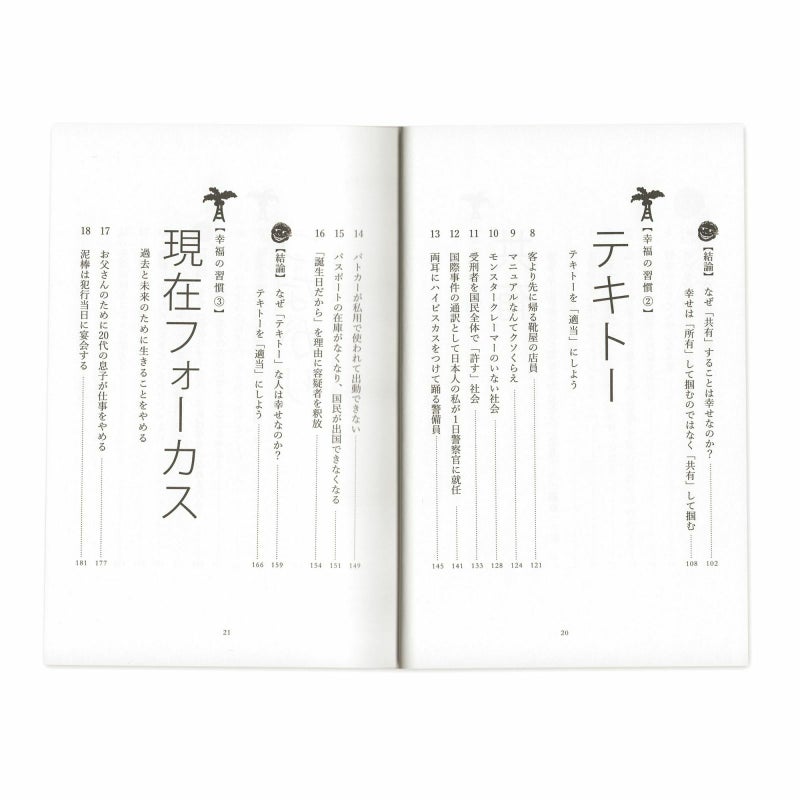 【結論】なぜ「共有」することは幸せなのか？ 102
幸せは「所有」して掴むのではなく「共有」して掴む 108
【幸福の習慣②】
テキトー
テキトーを「適当」にしよう
8 客より先に帰る靴屋の店員 121
9 マニュアルなんてクソくらえ 124
10 モンスタークレーマーのいない社会 128
11 受刑者を国民全体で「許す」社会 133
12 国際事件の通訳として日本人の私が1日警察官に就任 141
13 両耳にハイビスカスをつけて踊る警備員 145
20
14 パトカーが私用で使われて出動できない 149
15 パスポートの在庫がなくなり、国民が出国できなくなる 151
16 「誕生日だから」を理由に容疑者を釈放 154
【結論】なぜ「テキトー」な人は幸せなのか？ 159
テキトーを「適当」にしよう 166
【幸福の習慣③】
現在フォーカス
過去と未来のために生きることをやめる
17 お父さんのために20代の息子が仕事をやめる 177
18 泥棒は犯行当日に宴会する 181
21